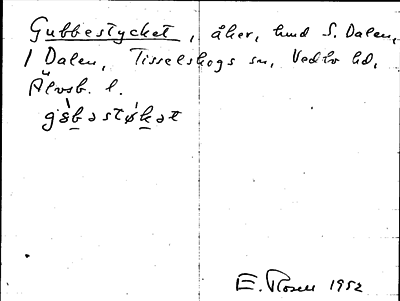 Gubbestycket, åker, hmd S. Dalen,
1 Dalen, Tisselskogs sn, Vedbo hd,
Älvsb. l.
E. Rosell 1952